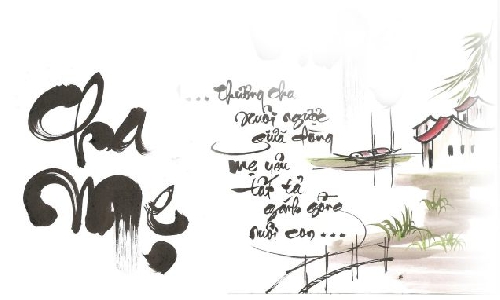 Cha
Mẹ
... thương cha
xuôi ngược
giữa dòng
mẹ yêu
tất tả
gánh gồng
nuôi con ...